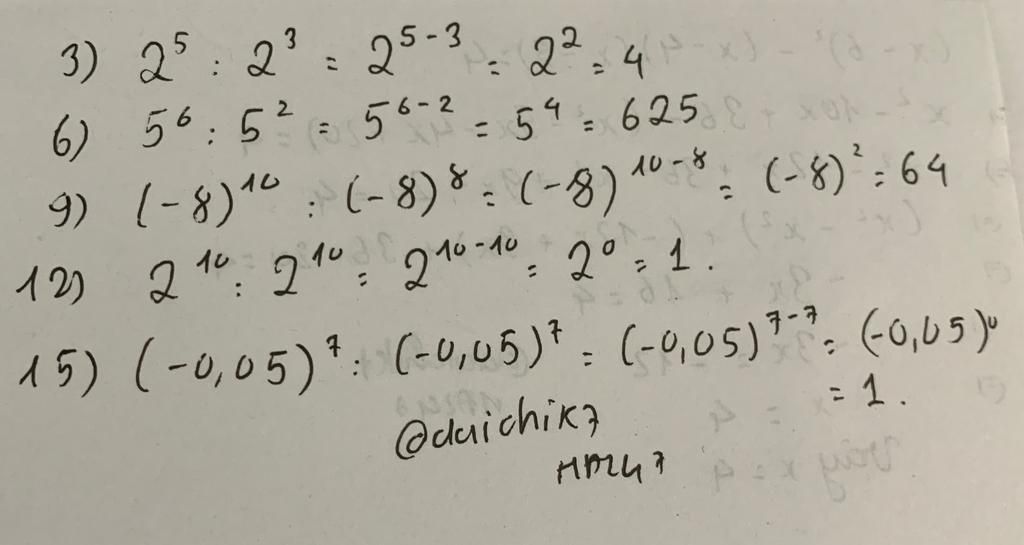 3) 2⁵ : 2³ = 2⁵⁻³ = 2² = 4
6) 5⁶ : 5² = 5⁶⁻² = 5⁴ = 625
9) (-8)¹⁰ : (-8)⁸ = (-8)¹⁰⁻⁸ = (-8)² = 64
12) 2¹⁰ : 2¹⁰ = 2¹⁰⁻¹⁰ = 2⁰ = 1.
15) (-0,05)⁷ : (-0,05)⁷ = (-0,05)⁷⁻⁷ = (-0,05)⁰
= 1.
@daichik7